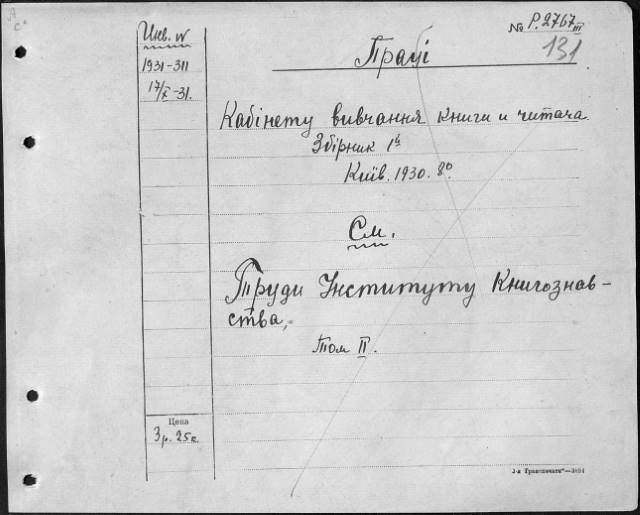 Инв. №
1931-311
17/X-31.
№ Р.2767 III
131
Праці
Кабінету вивчання книги и читача
Збірник 1й
Київ. 1930. 8º.
См.
Труди Інституту Книгознав-
ства,
Том II.
Цена
3 р. 25 к.